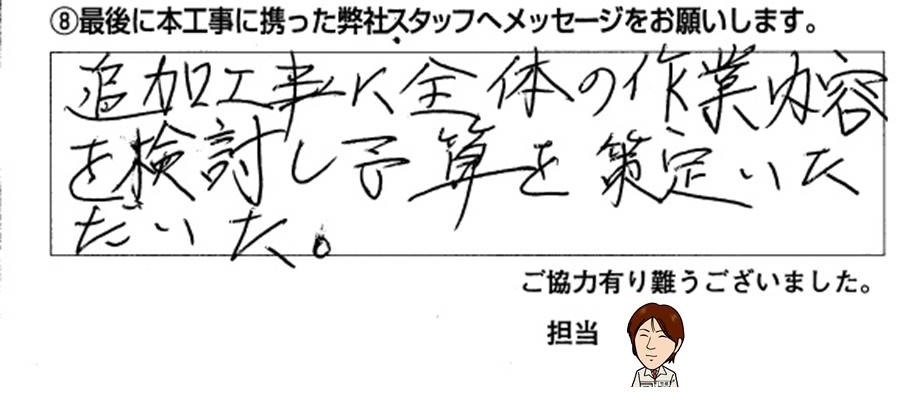 ⑧最後に本工事に携った弊社スタッフへメッセージをお願いします。
追加工事に全体の作業内容
を検討し予算を策定いた
だいた。
ご協力有り難うございました。
担当